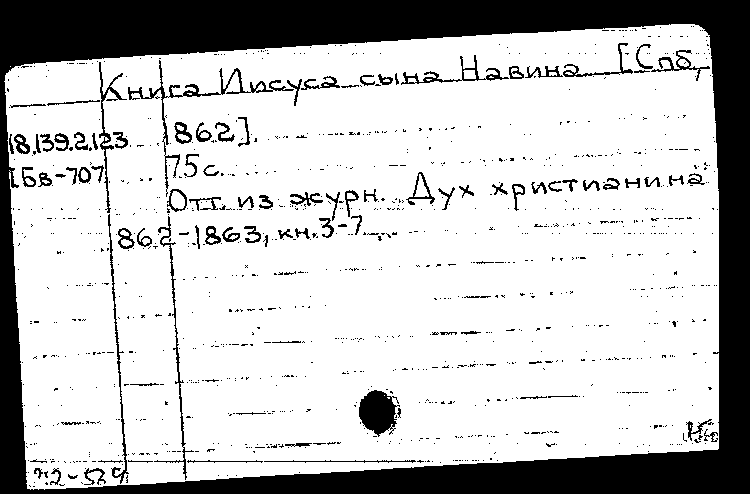 Книга Иисуса сына Навина [Спб,
18.139.2.123 1862].
IБв-707 75 с.
Отт. из журн. "Дух христианина"
862-1863, кн. 3-7